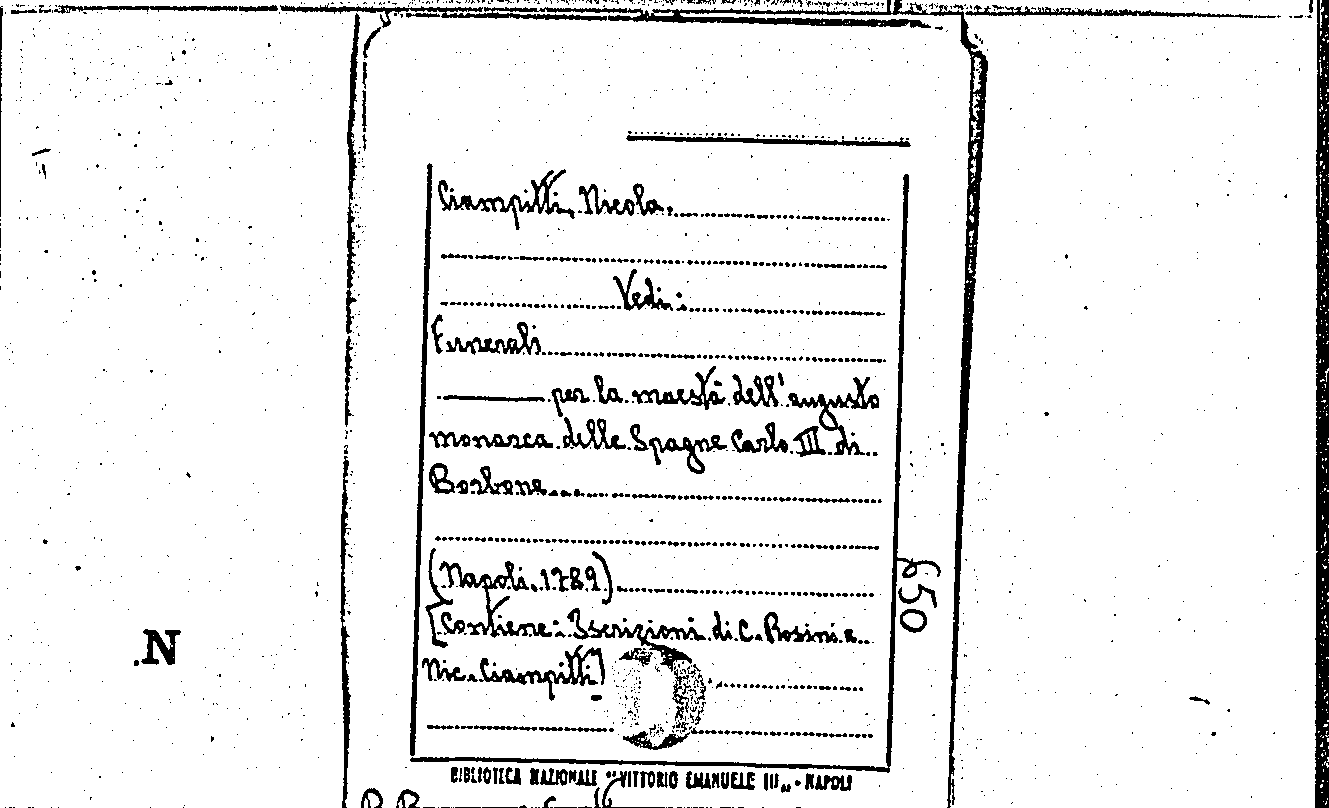 Ciampitti, Nicola.
Vedi:
Funerali
per la maestà dell'augusto
monarca delle Spagne Carlo III di
Borbone...
(Napoli, 1789)
[Contiene: Iscrizioni di C. Rosini e
Nic. Ciampitti]
650
.N
BIBLIOTECA NAZIONALE "VITTORIO EMANUELE III" - NAPOLI